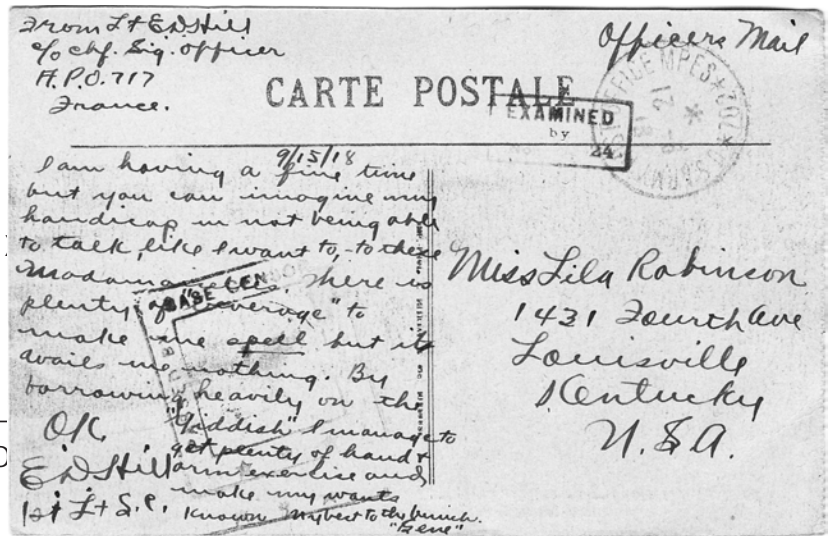 From Lt ED Hill
c/o chf. Sig. officer
A.P.O. 717
France.
Officers Mail
CARTE POSTALE
EXAMINED
by
24
9/15/18
I am having a fine time
but you can imagine my
handicap in not being able
to talk, like I want to, to these
There is
plenty of "beverage" to
make me spell but it
avails me nothing. By
borrowing heavily on the
"Yiddish" I manage to
get plenty of hand &
arm exercise and
make my wants
known My best to the bunch.
"Gene"
OK
ED Hill
1st Lt S.C.
BASE CENSOR
Miss Lila Robinson
1431 Fourth Ave
Louisville
Kentucky
U.S.A.